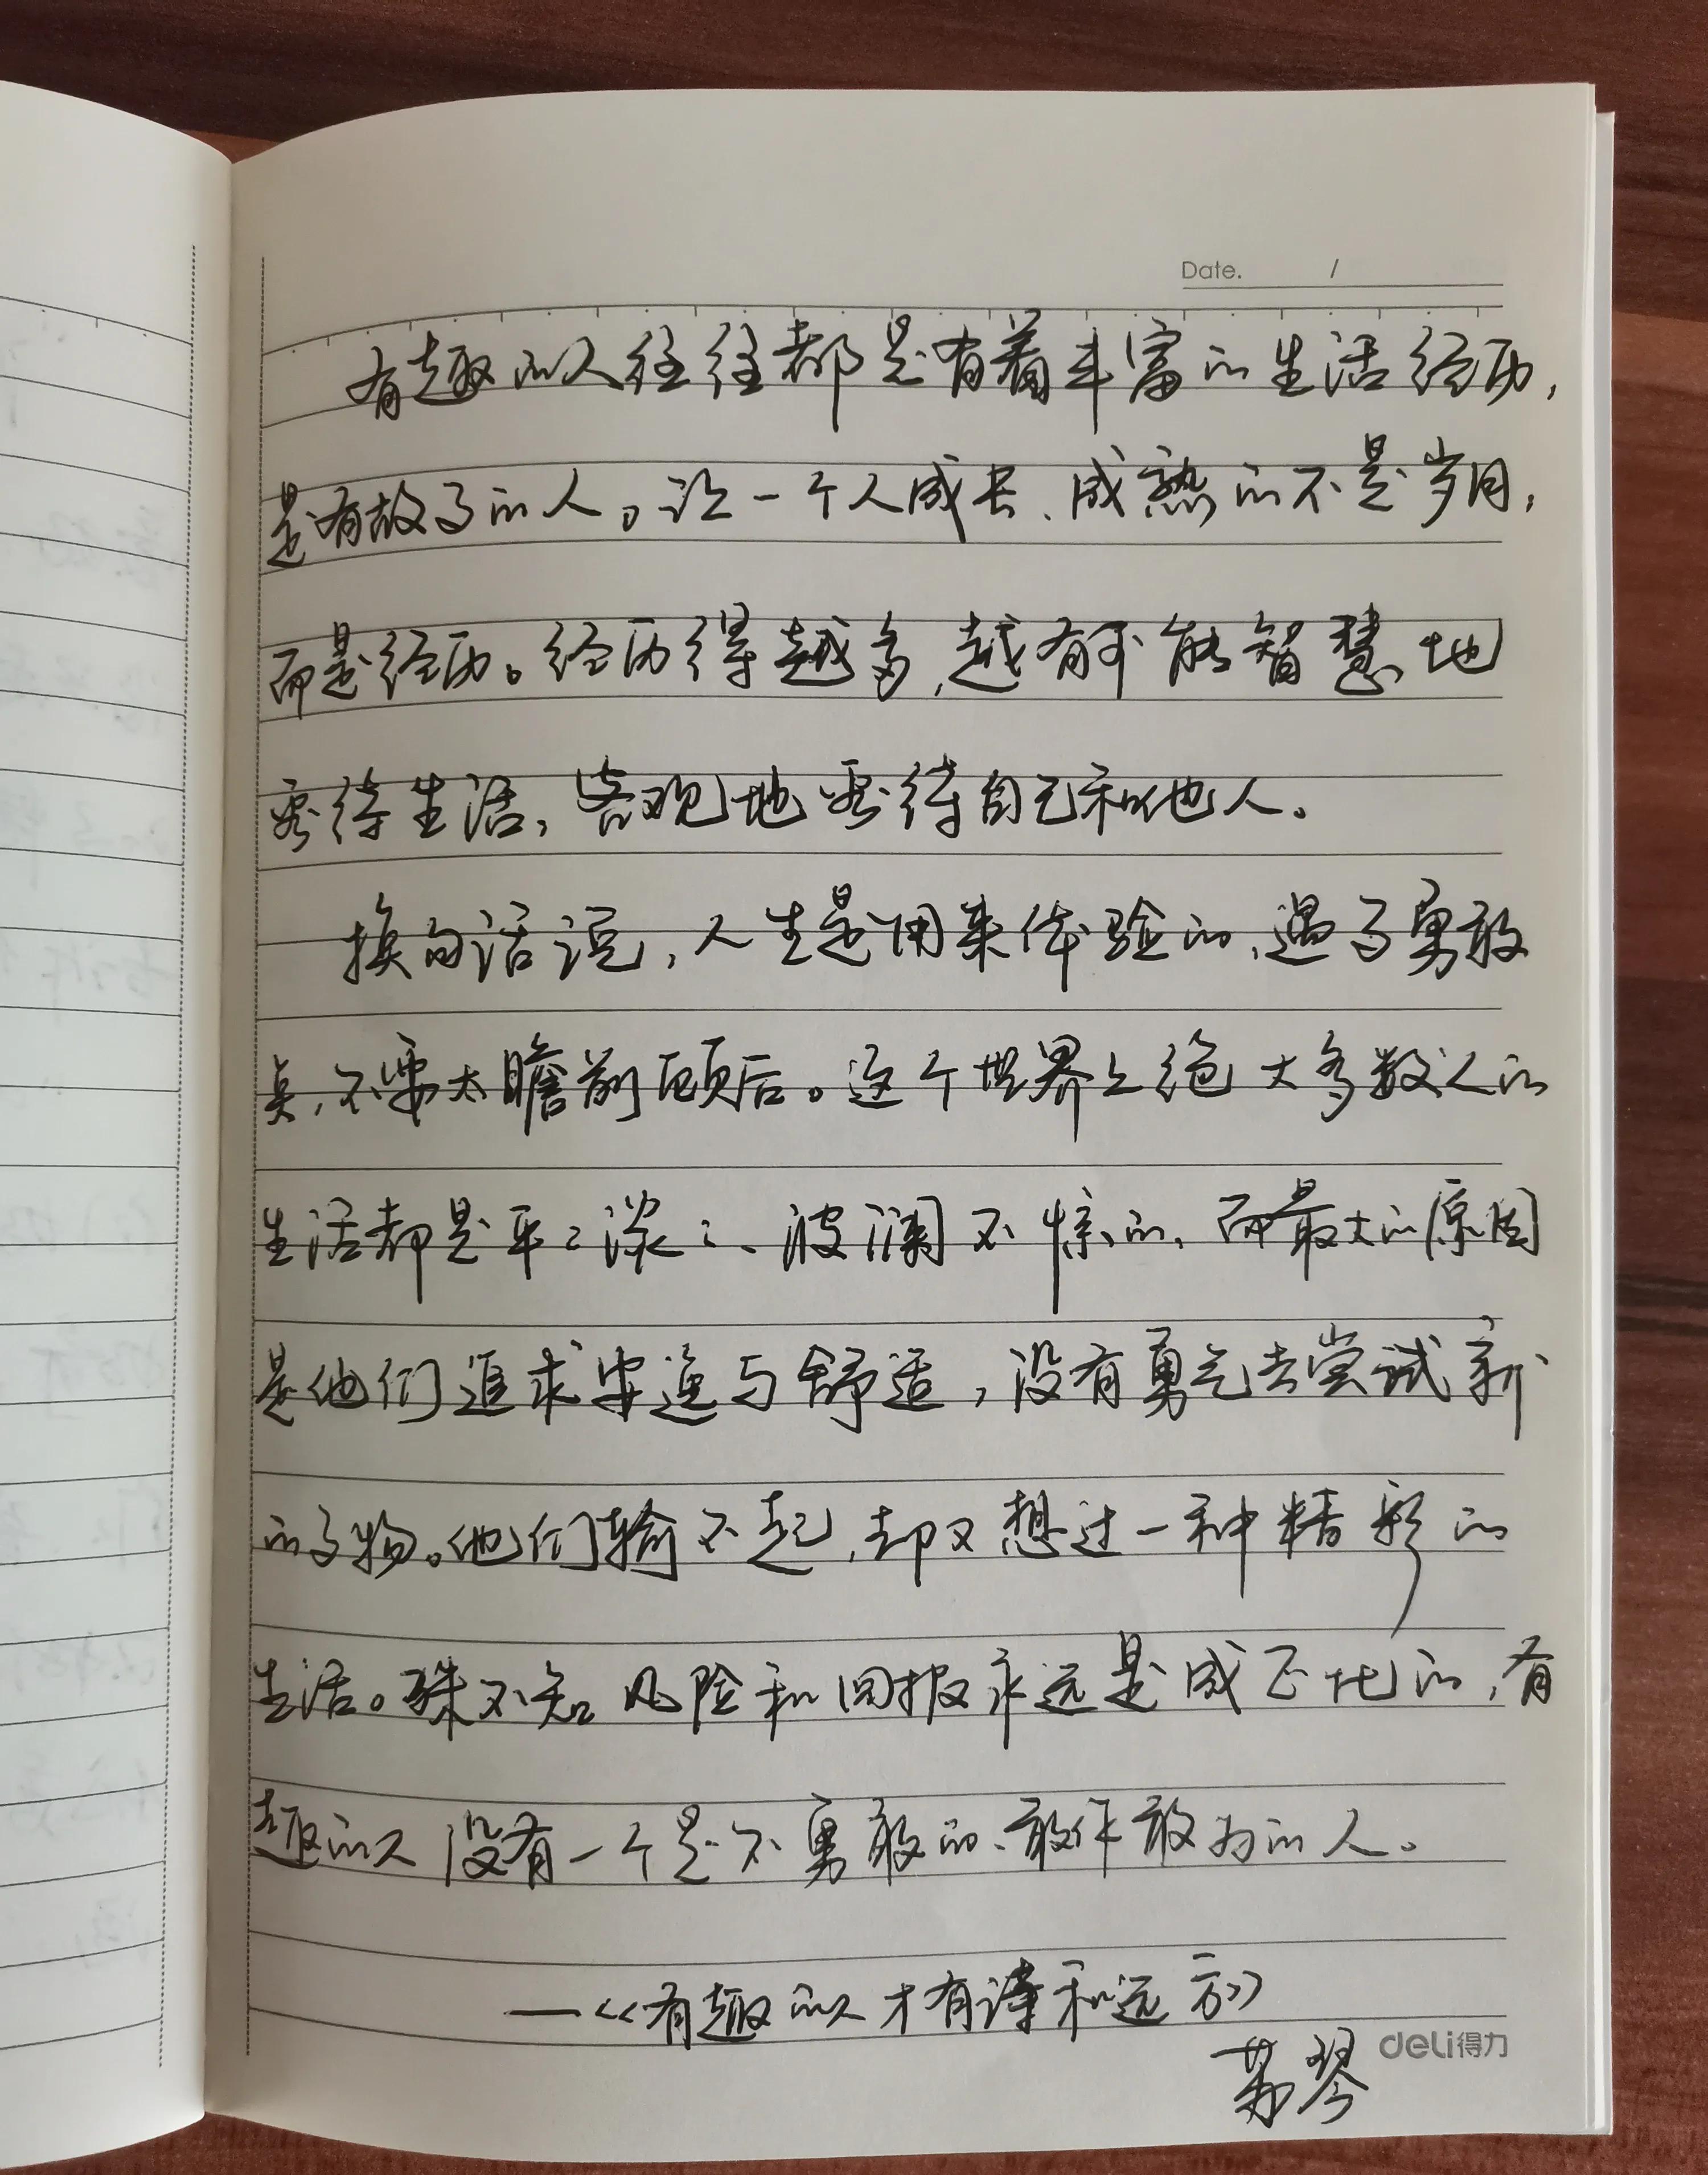 Date. /
有趣的人往往都是有着丰富的生活经历,
是有故事的人。让一个人成长、成熟的不是岁月,
而是经历。经历得越多,越有可能智慧地
看待生活,客观地看待自己和他人。
换句话说,人生是用来体验的,遇事勇敢
点,不要太瞻前顾后。这个世界上绝大多数人的
生活都是平平淡淡、波澜不惊的,而最大的原因
是他们追求安逸与舒适,没有勇气去尝试新
的事物。他们输不起,却又想过一种精彩的
生活。殊不知风险和回报永远是成正比的,有
趣的人没有一个是不勇敢的、敢作敢为的人。
—《有趣的人才有诗和远方》
deli得力